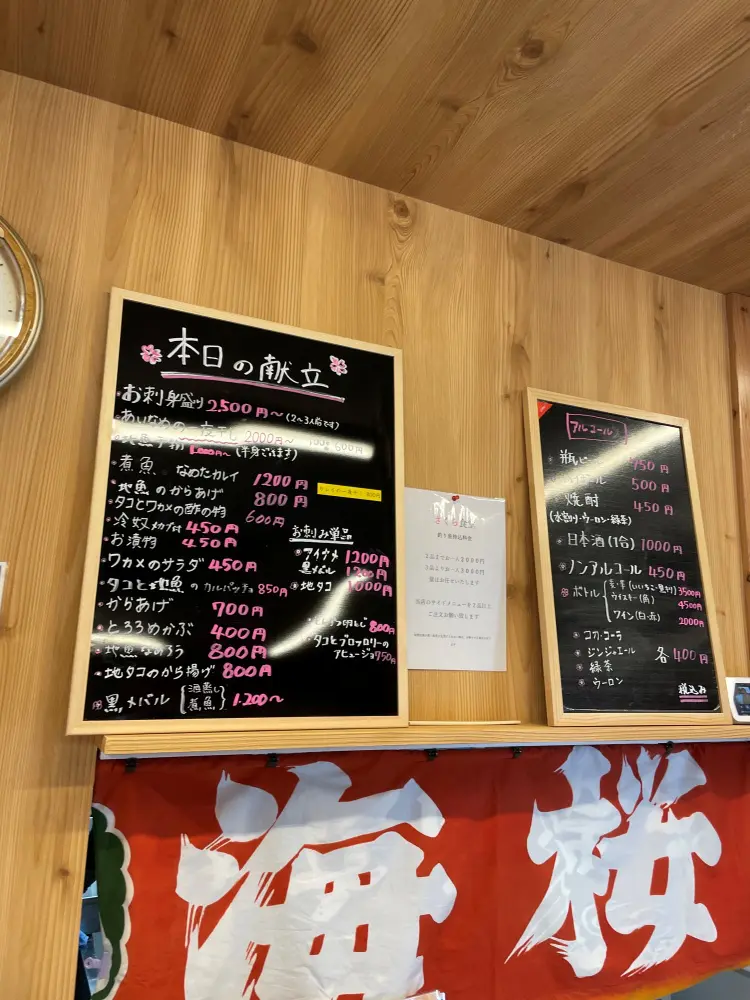 本日の献立
・お刺身盛り 2,500円〜(2〜3人前です)
・あいなめの一夜干し 2000円〜
(半身ございます)
・煮魚 なめたカレイ 1200円
・地魚のからあげ 800円
・タコとワカメの酢の物 600円
・冷奴 メカブ付 450円
・お漬物 450円
・ワカメのサラダ 450円
・タコと地魚のカルパッチョ 850円
・からあげ 700円
・とろろめかぶ 400円
・地魚なめろう 800円
・地タコのから揚げ 800円
黒メバル {酒蒸し 煮魚} 1.200〜
お刺み単品
アイナメ 1200円
黒メバル 1200円
地タコ 1000円
800円
・タコとブロッコリーの
アヒージョ 750円
釣り魚持込料金
アルコール
瓶ビール 750円
500円
焼酎 450円
(水割り・ウーロン・緑茶)
日本酒(1合) 1000円
ノンアルコール 450円
ボトル
麦・芋(いいちこ・黒判) 3500円
ウイスキー(角) 4500円
ワイン(白・赤) 2000円
コカ・コーラ
ジンジャエール
緑茶
ウーロン
各400円
税込み
海桜